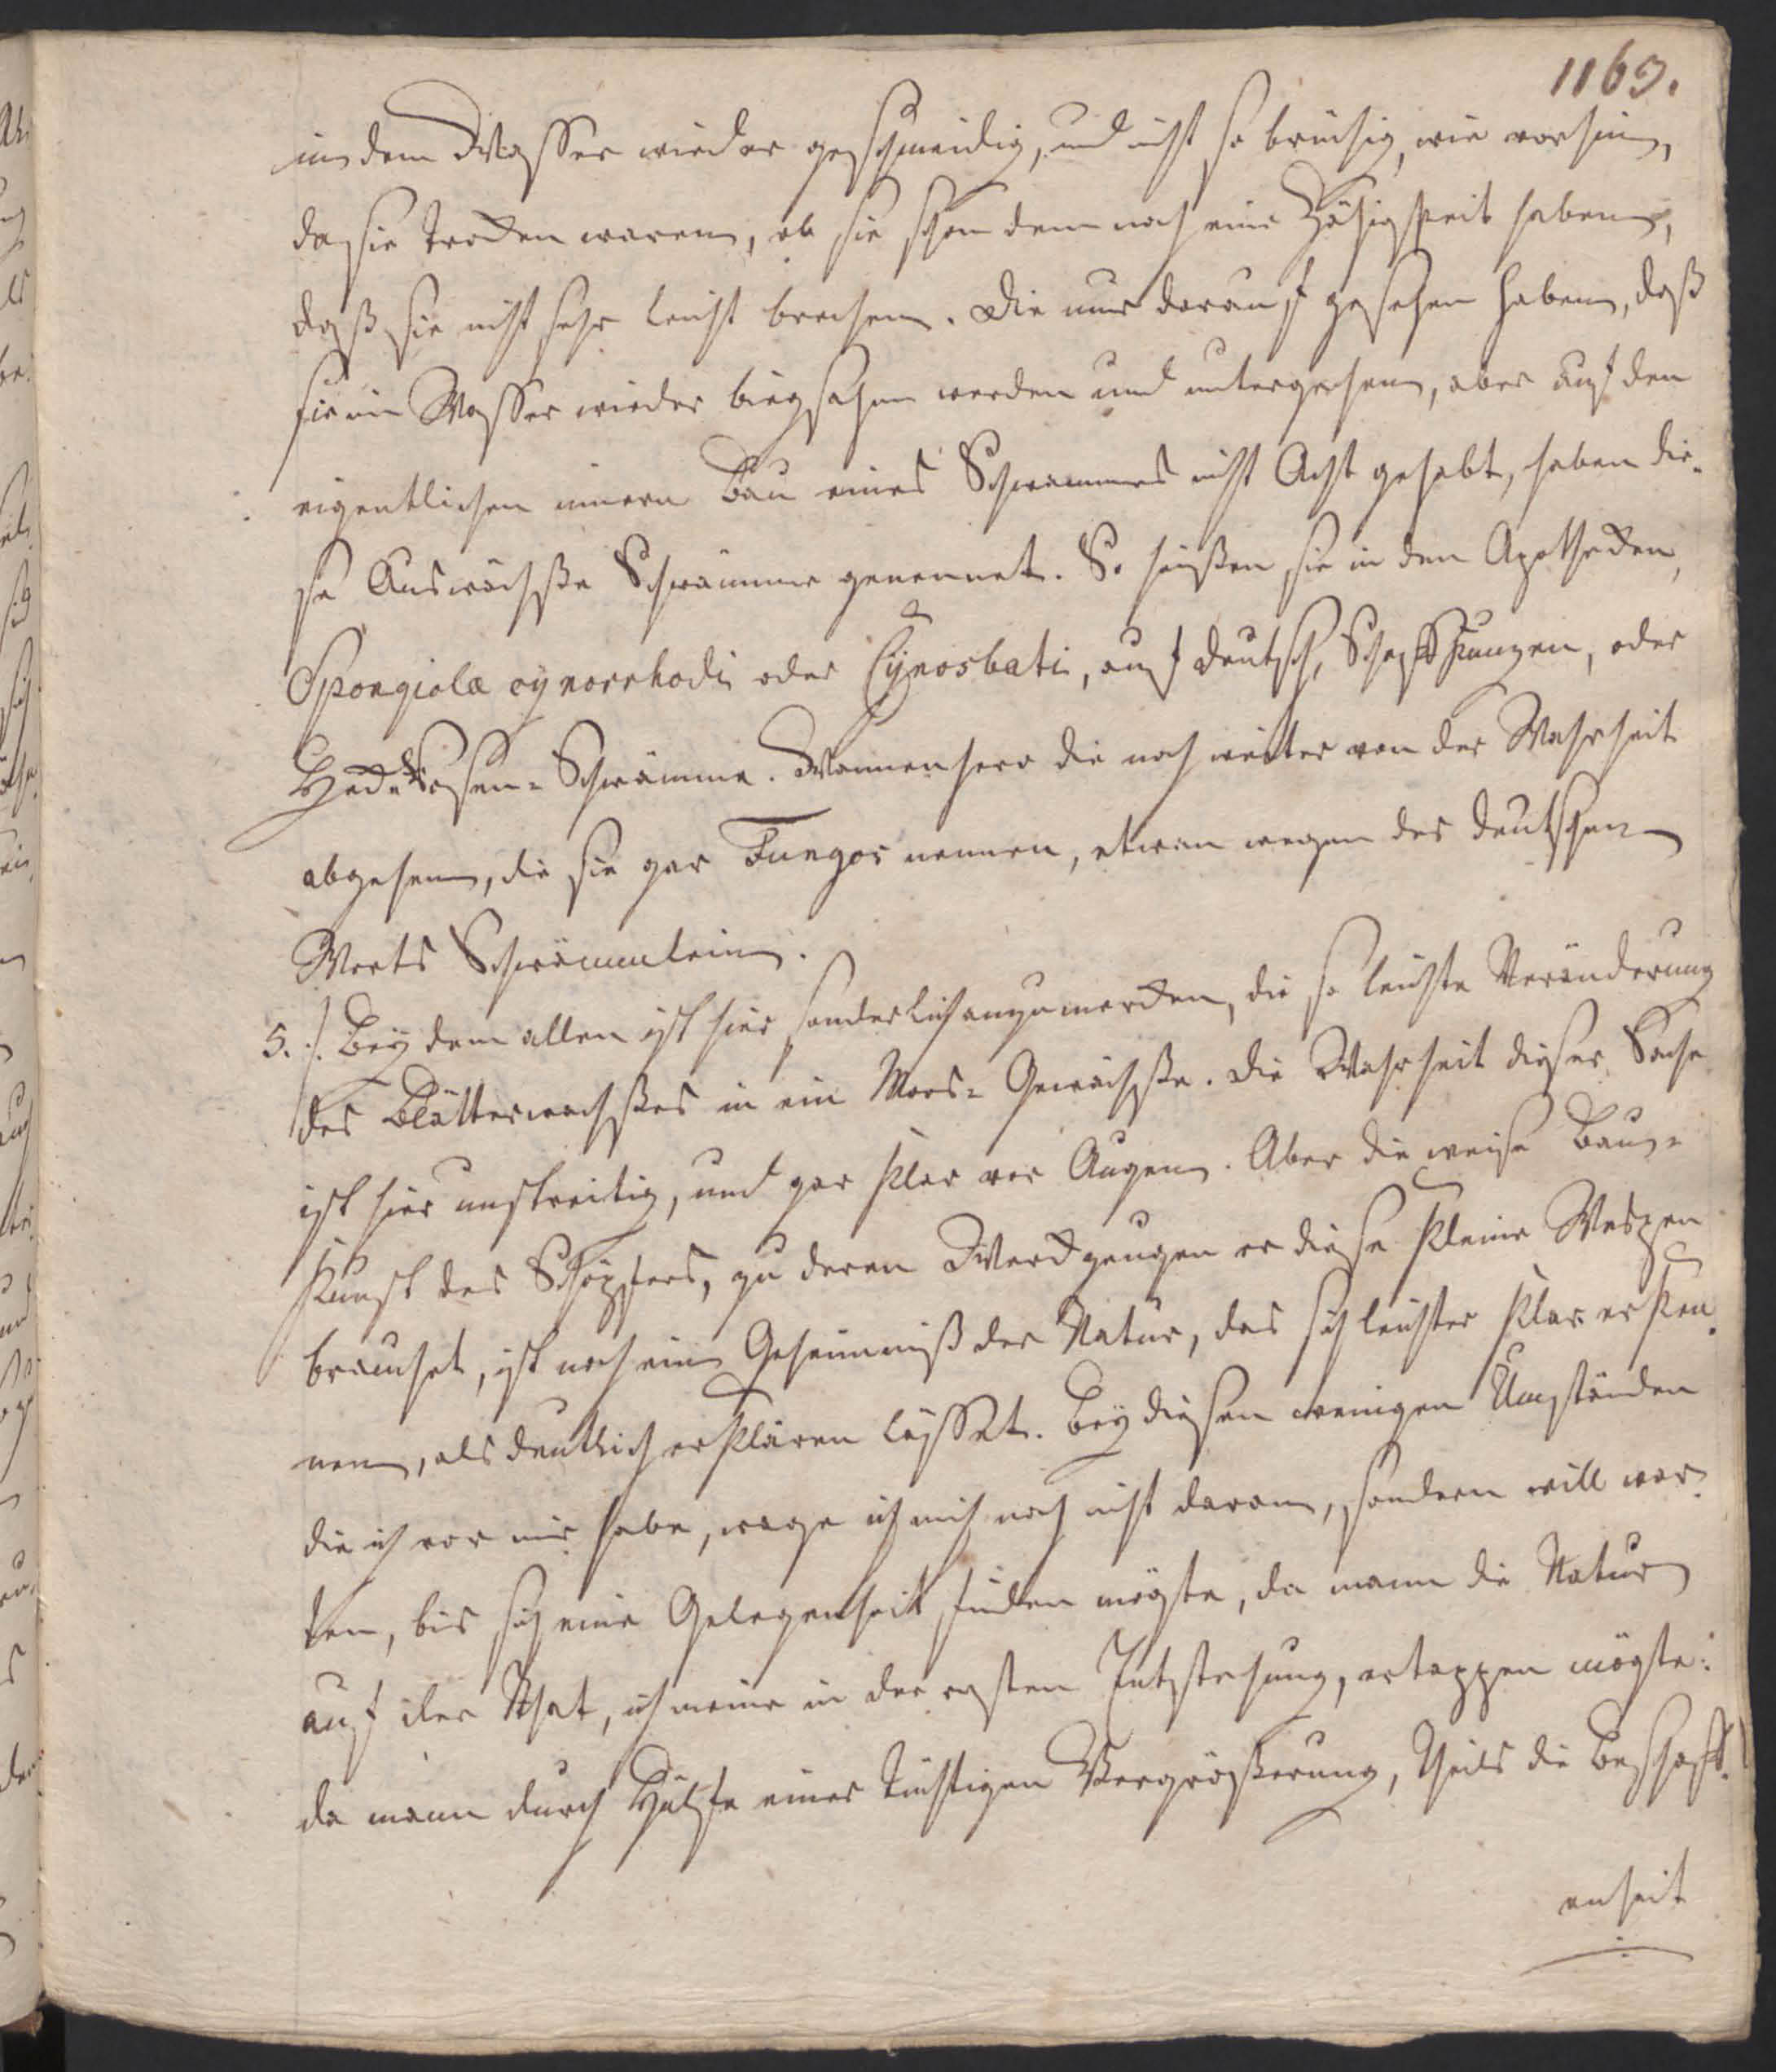 1169.
in dem Wasser wieder geschmeidig, und nicht so brüchig, wie vorhin,
da sie trocken waren, ob sie schon dennoch eine Zähigkeit haben,
daß sie nicht sehr leicht brechen. Die nur darauf gesehen haben, daß
sie im Wasser wieder biegsahm werden und untergehen, aber auf den
eigentlichen innern Bau eines Schwammes nicht Acht gehabt, haben die-
se Auswächsse Schwämme genennet. So heißen sie in den Apothecken,
Spongiolæ cynorrhodi oder Cynosbati, auf deutsch, Schlafkunzen, oder
Heckrosen-Schwämme. Wannenhero die noch weiter von der Wahrheit
abgehen, die sie gar Fungos nennen, etwan wegen des deutschen
Worts Schwämmlein.
5. ./. Bey dem allen ist hier sonderlich anzumercken, die so leichte Veränderung
des Blätterwachsses in ein Moos-Gewächsse. Die Wahrheit dieser Sache
ist hier unstreitig, und gar klar vor Augen. Aber die weise Bau-
kunst des Schöpfers, zu deren Werckzeugen er diese kleine Wespen
brauchet, ist noch ein Geheimniß der Natur, das sich leichter klar erken-
nen, als deutlich erklären lässet. Bey diesen wenigen Umständen
die ich vor mir habe, wage ich mich noch nicht daran, sondern will war-
ten, bis sich eine Gelegenheit finden mögte, da mann die Natur
auf der That, ich meine in der ersten Entstehung, ertappen mögte:
da mann durch Hülfe einer tüchtigen Vergrößerung, theils die Beschaff-
enheit